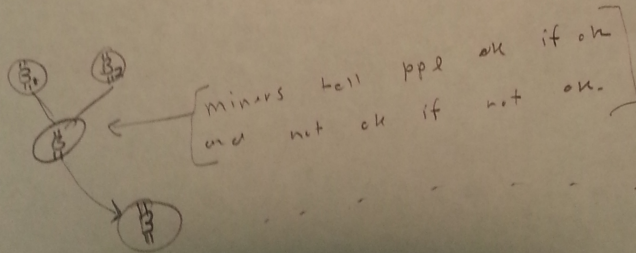 ₿1 ₿2
₿
₿
miners tell ppl ok if ok
and not ok if not ok.